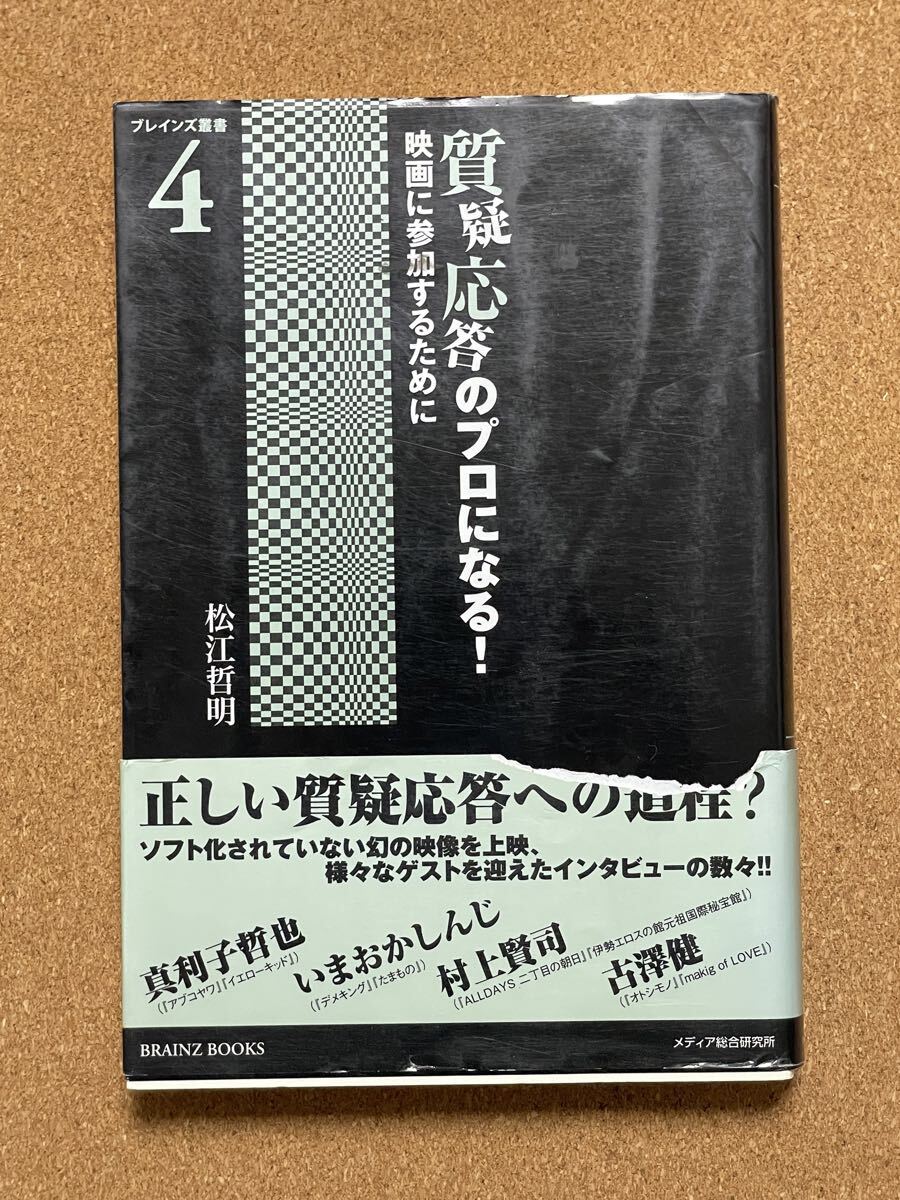 ブレインズ叢書
4
質疑応答のプロになる!
映画に参加するために
松江哲明
正しい質疑応答への道程?
ソフト化されていない幻の映像を上映、
様々なゲストを迎えたインタビューの数々!!
真利子哲也
(『アブコヤワ』『イエローキッド』)
いまおかしんじ
(『デメキング』『たまもの』)
村上賢司
(『ALLDAYS 二丁目の朝日』『伊勢エロスの館元祖国際秘宝館』)
古澤健
(『オトシモノ』『makig of LOVE』)
BRAINZ BOOKS
メディア総合研究所